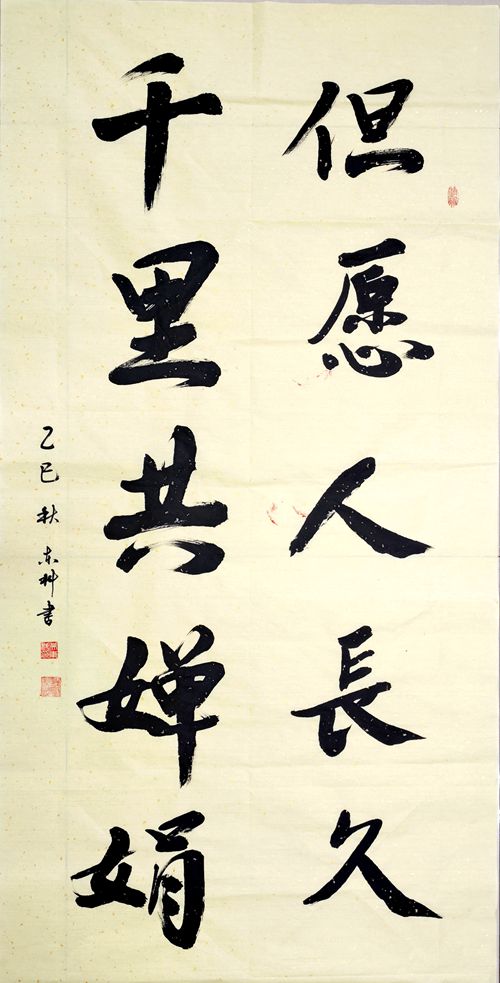 但愿人長久
千里共婵娟
乙巳秋东科书